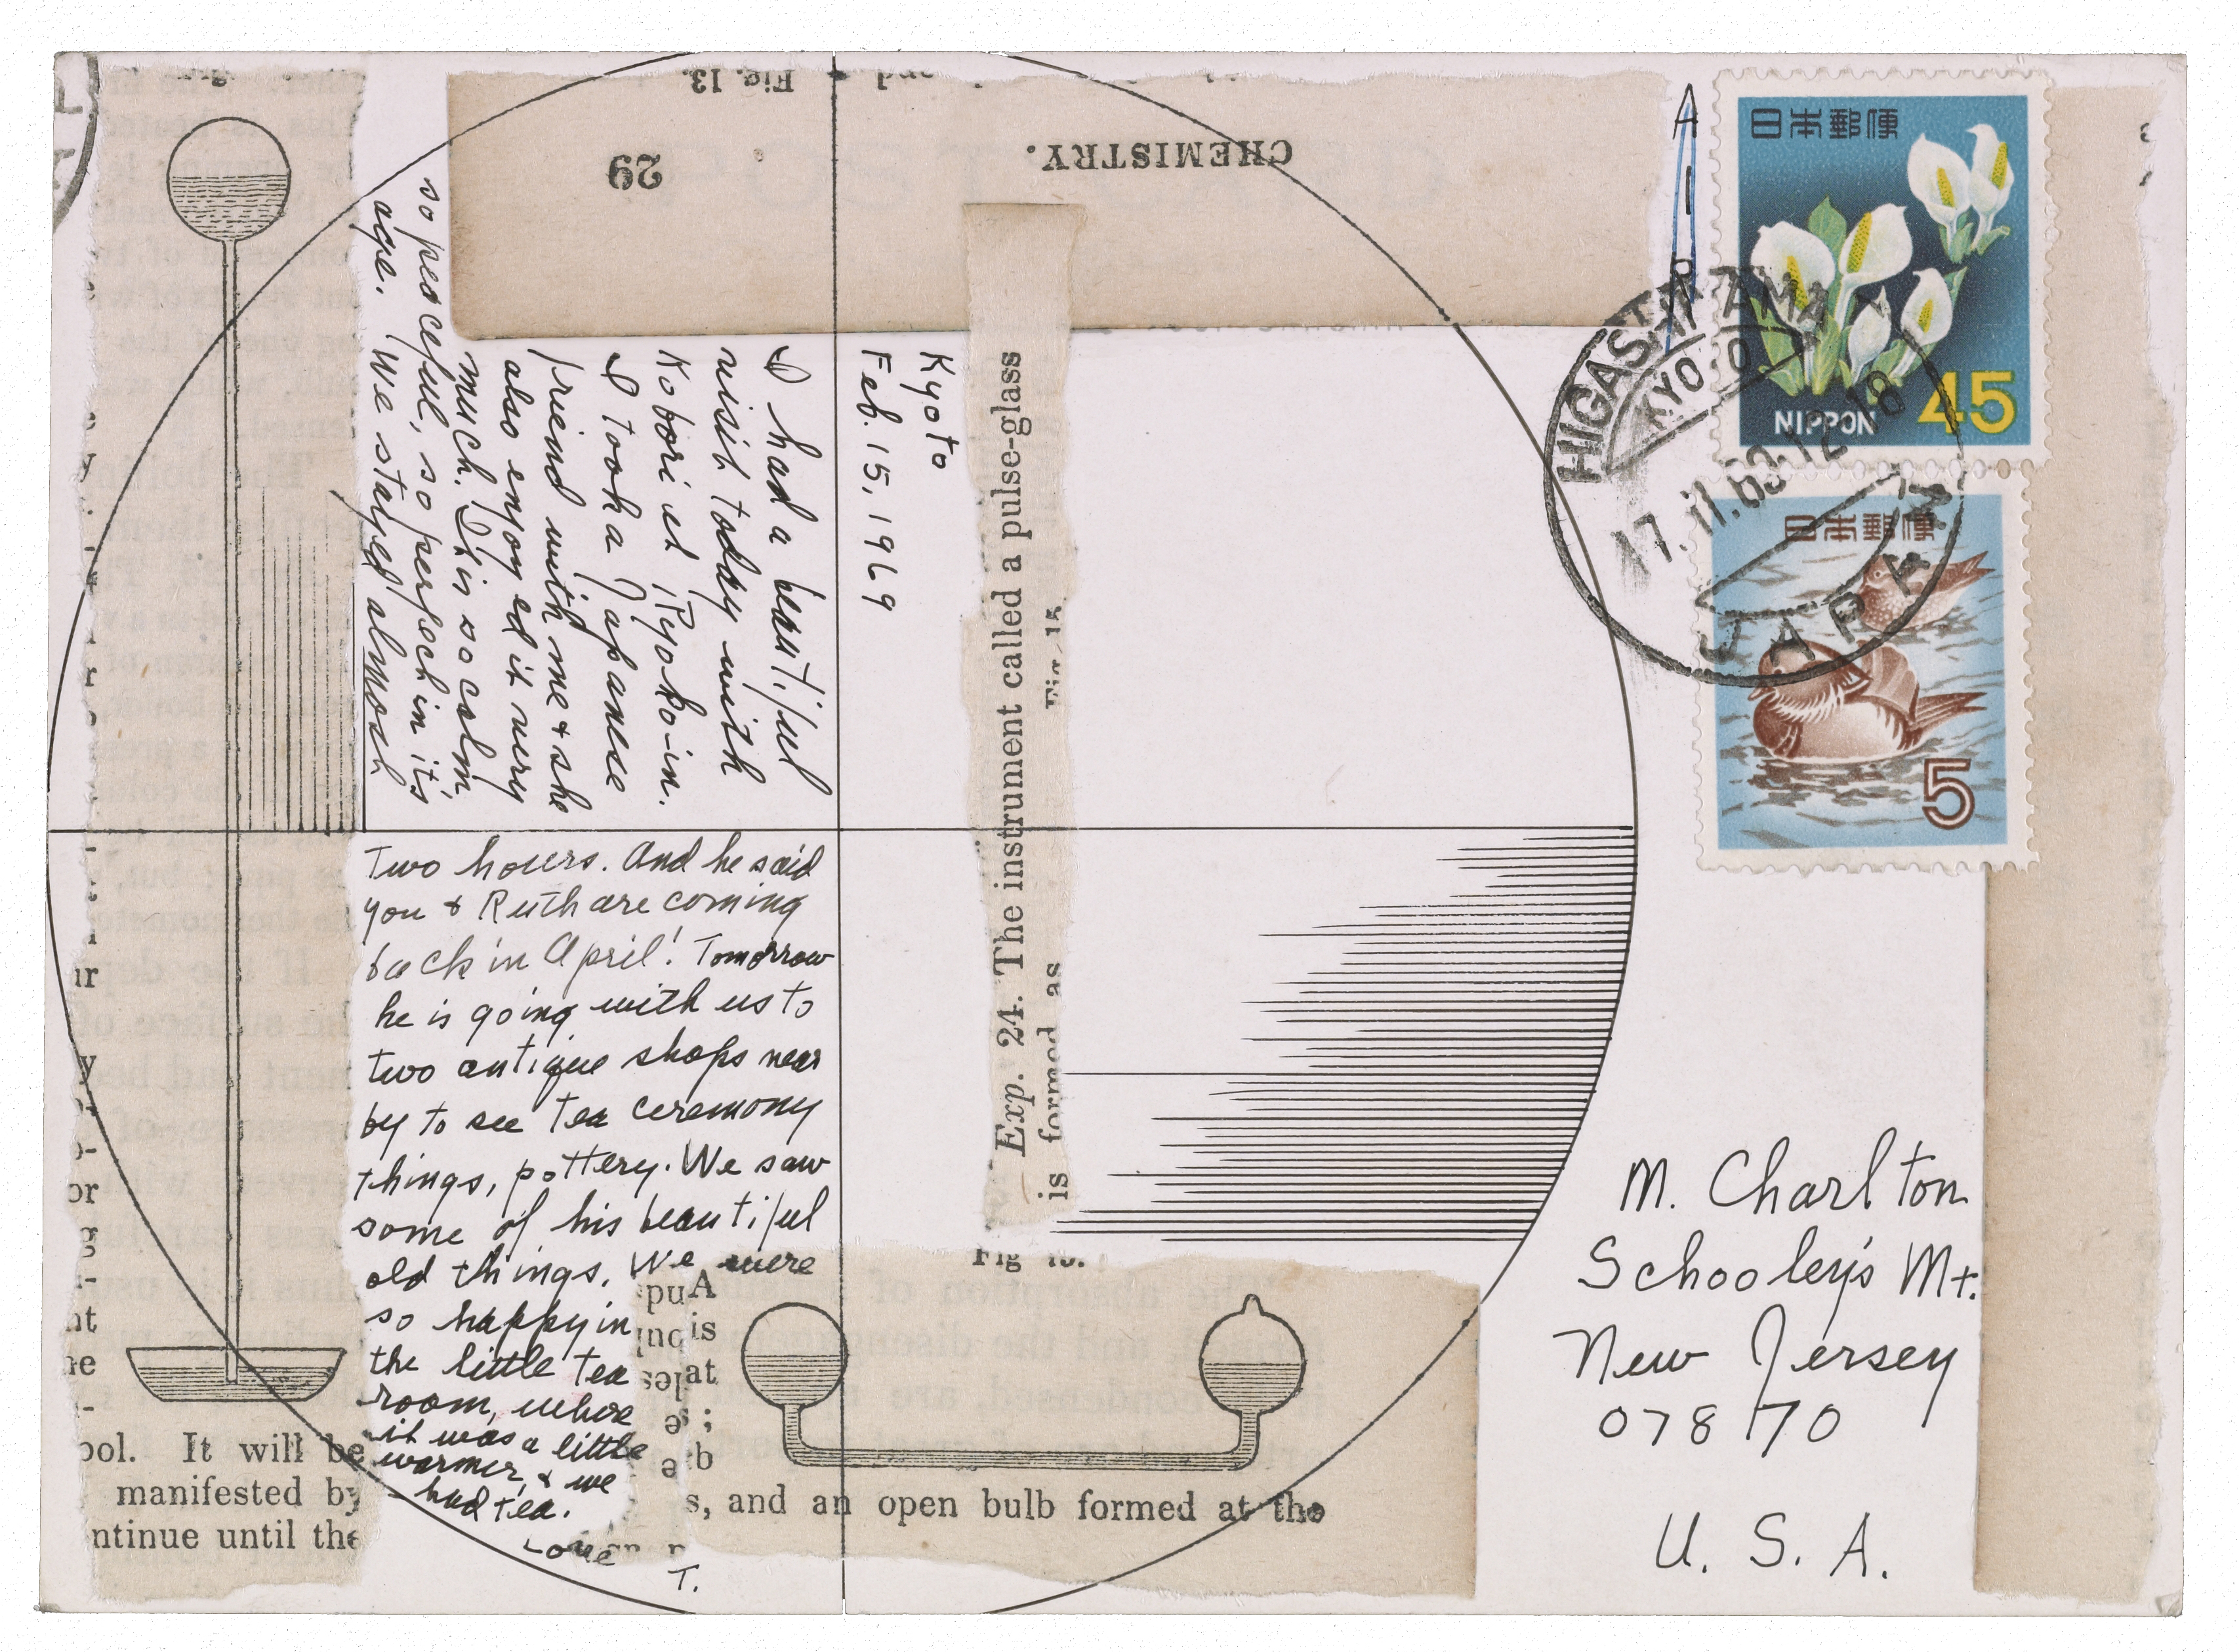 Kyoto
Feb. 15, 1969
I had a beautiful
visit today with
Kobori at Ryoko-in.
I took a Japanese
friend with me & she
also enjoyed it very
much. It is so calm
so peaceful, so perfect in it's
age. We stayed almost
two hours. And he said
you & Ruth are coming
back in April! Tomorrow
he is going with us to
two antique shops near
by to see tea ceremony
things, pottery. We saw
some of his beautiful
old things. We were
so happy in
the little tea
room, where
it was a little
warmer, & we
had tea.
Love
T.
AIR
M. Charlton
Schooley's Mt.
New Jersey
07870
U. S. A.
日本郵便
NIPPON 45
日本郵便
5
HIGASHIYAMA
KYOTO
17.II.69.12-18
JAPAN
Fig. 13.
29
CHEMISTRY.
Exp. 24. The instrument called a pulse-glass
is formed as
Fig. 15.
ool. It will be
manifested by
ntinue until the
s, and an open bulb formed at the